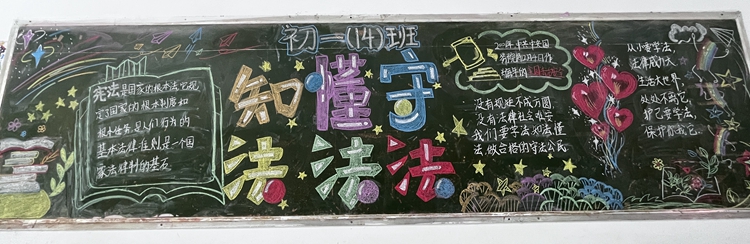 初一(14)班
知懂守
法法法
宪法是国家的根本法,它规
定了国家的根本制度和
根本任务,是人们行为的
基本法律准则,是一个国
家法律制的基石
没有规矩不成方圆
没有法律社会难安
我们要学法知法懂
法,做合格的守法公民
从小要学法,
法律威力大
生活大世界,
处处不离它,
护它要学法,
保护你我它